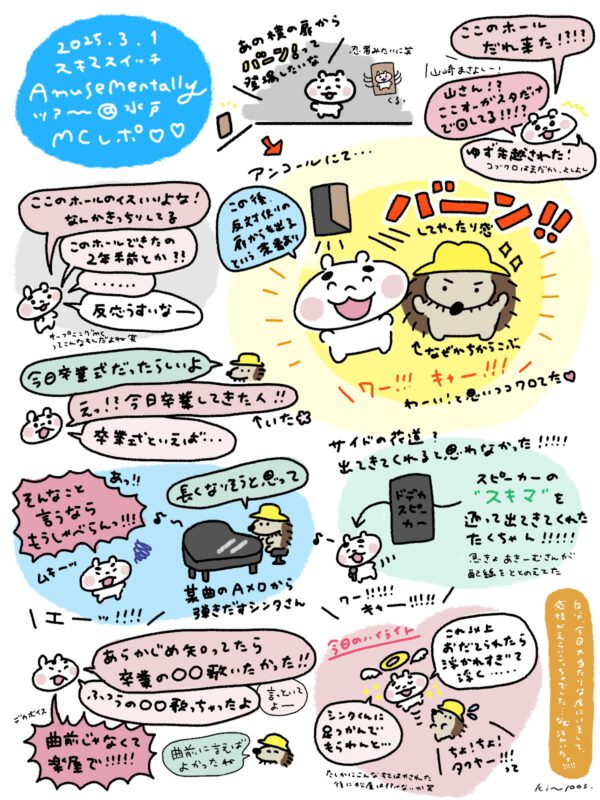 2025.3.1
スキマスイッチ
Amusementally
ツアー@水戸
MCレポ♡♡
あの横の扉から
バーン!って
登場したいな
忍者みたいに笑
くるっ
ここのホール
だれ来た!?!?
山崎まさよしー!
山さん!?
ここオーガスタだけ
で回してる!!!?
ゆず先越された!
コブクロはまだか、よしよし
ここのホールのイスいいよな!
なんかきっちりしてる
このホールできたの
2年半前とか?!
・・・・・・
反応うすいなー
オープニングMC
ってこんなもんだよね笑
アンコールにて…
この後、
反対側の
扉からも出る
という荒業
バーン!!
してやったり感
なぜかちからこぶ
ワー!!! キャー!!!
わーい!と思いっコクロてた♥
今日卒業式だったらしいよ
えっ!?今日卒業してきた人!!
↑いた
卒業式といえば…
そんなこと
言うなら
もうしゃべらんっ!!!
あっ!!
ムキーッ
エーッ!!!!
長くなりそうと思って
某曲のAメロから
弾きだすシンタさん
サイドの花道?
出てきてくれると思わなかった!!!!!
ドデカ
スピー
カー
スピーカーの
"スキマ"を
通って出てきてくれた
たくちゃん!!!!!
ワー!!!!!
キャー!!!!
あらかじめ知ってたら
卒業の〇〇歌いたかった!!
ふつうの〇〇歌っちゃったよ
言っといて
よー
デカボイス
曲前じゃなくて
楽屋で!!!!!
曲前に言えば
よかったが
今日のハイライト
これ以上
おだてられたら
浮かれすぎて
浮く……
シンタくんに
足つかんで
もらわんと…
ちょ!ちょ!
タクヤー!!!
って
ki~roos.